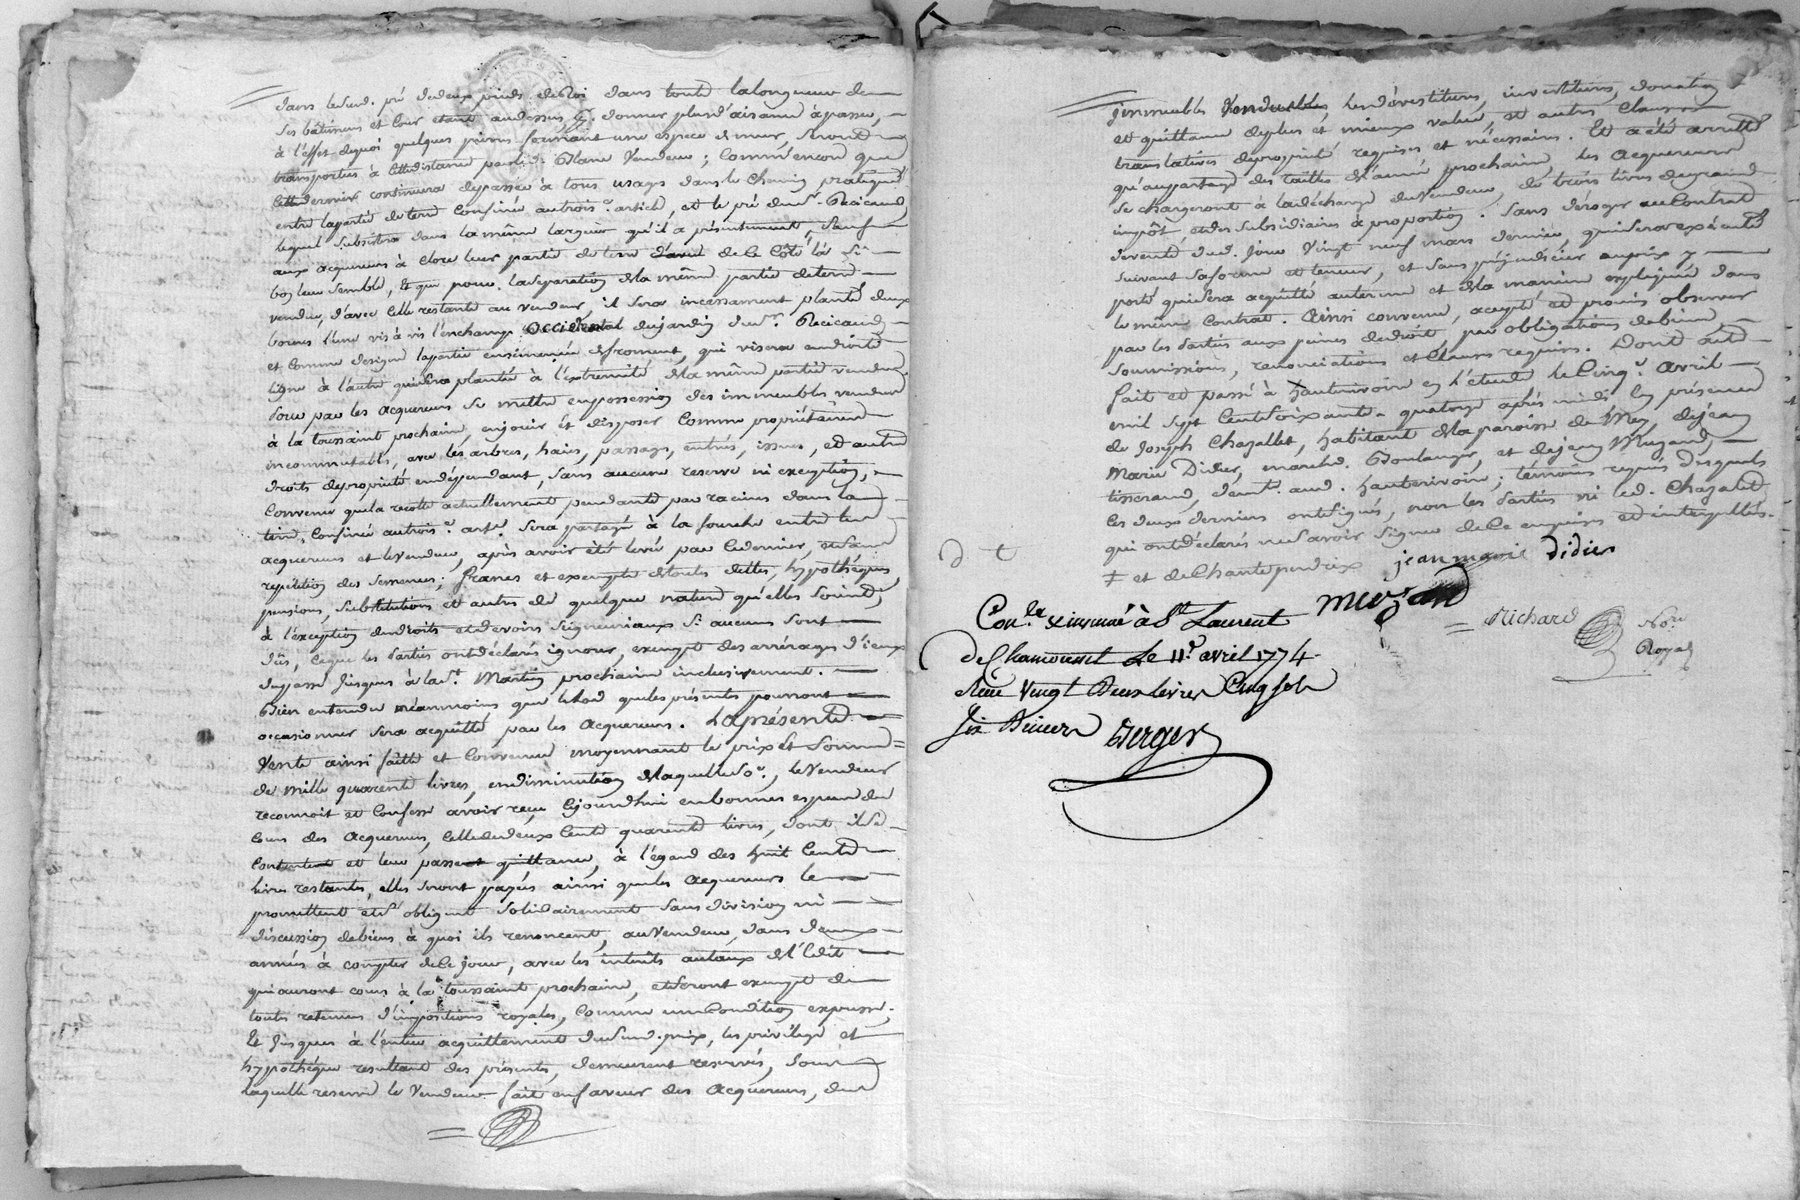 dans led. pré de deux pieds de Roi dans toute la longueur de
ses bâtimens et cour etant au dessus, donner plus d'aisance à passer,
à l'effet de quoi quelques pierres formant une espece de mur, seront
transportées à cette distance par led. Vendeur; comm'encore que
cedernier continuera de passer à tous usages dans le chemin pratiqué
entre la partie de terre confinée au trois.e article, et le pré dud. sr. Recicaud,
lequel subsistera dans la même largeur qu'il a présentement, sauf
aux acquereurs à clore leur partie de terre de ce côté là si
bon leur semble, Et que pour la separation de la même partie de terre
vendue, d'avec celle restante au vendeur, il sera incessament planté deux
bornes l'une vis à vis l'enchamp occidental du jardin du sr. Recicaud
et comme designe la partie ensemencée de froment, qui visera en droite
ligne à l'autre qui sera plantée à l'extremité de la même partie vendue,
pour par les acquereurs se mettre en possession des immeubles vendus
à la toussaint prochaine, en jouir et disposer comme propriétaires
incommutables, avec les arbres, haies, passages, entrées, issues, et autres
droits de propriété en dépendant, sans aucune reserve ni exception,
convenu que la recolte actuellement pendante par racines dans la
terre, confinée au trois.e art.e sera partagée à la fourche entre les
acquereurs et le vendeur, après avoir été levée par ce dernier, et sans
repetition des semences; francs et exempts de toutes dettes, hypothéques,
pensions, substitutions et autres de quelque nature qu'elles soient,
à l'exception des droits et devoirs seigneuriaux si aucuns sont
dûs, ce que les parties ont déclaré ignorer, exempt des arrérages d'iceux
du passé jusques à la st. Martin prochaine inclusivement.
Bien entendu néanmoins que le lod que les présentes pourront
occasionner sera acquitté par les acquereurs. La présente
Vente ainsi faitte et convenue moyennant le prix et somme
de mille quarante livres, en diminution de laquelle so.e, le vendeur
reconnoit et confesse avoir reçu cejourdhui en bonnes especes de
cours des acquereurs, celle de deux cents quarante livres, dont il se
contente et leur passe quittance, à l'égard des huit cents
livres restantes, elles seront payées ainsi que les acquereurs le
promettent et s'obligent solidairement sans division ni
discussion de biens à quoi ils renoncent, au vendeur, dans deux
années à compter de ce jour, avec les intérêts au taux de l'édit
qui auront cours à la toussaint prochaine, et seront exempts de
toutes retenues d'impositions royales, comme une condition expresse,
Et jusques à l'entier acquittement dud. prix, les privilége et
hypothéque resultant des présentes, demeurent reservés, sous
laquelle reserve le Vendeur fait en faveur des acquereurs, des
immeubles Vendus, les dévestitures, investitures, donation
et quittance de plus et mieux value, et autres clauses
translatives de propriété requises et nécessaires. Et a été arretté
qu'au partage des tailles de l'année prochaine les acquereurs
se chargeront à la décharge du Vendeur, de trois livres de grand
impôt, et des subsidiaires à proportion. Sans déroger au contrat
de vente dud. jour Vingt neuf mars dernier, qui sera exécuté
suivant sa forme et teneur, et sans préjudicier au prix y
porté qui sera acquitté au terme et de la maniere expliquée dans
le même contrat. Ainsi convenu, accepté et promis observer
par les parties aux peines de droit, par obligations de biens,
soumissions, renonciations et clauses requises. Dont acte
fait et passé à hauterivoire en l'étude le cinq.e avril
mil sept cent soixante quatorze après midi en présence
de Joseph Chazallet, habitant de la paroisse de Mey, de jean
Marie Didier, marchd. Boulanger, et de jean Mugand,
tisserand, demt. aud. hauterivoire, témoins requis desquels
les deux derniers ont signés, non les parties ni led. Chazalet
qui ont déclaré ne savoir signer de ce enquis et interpellés.
‡ et de Chantependrix jean marie didier
D t
mugand
Richard No.re
Royal
Con.lé & insinué à St. Laurent
De Chamousset Le 11e. avril 1774.
Reçu Vingt Deux livres Cinq sols
six deniers Berger